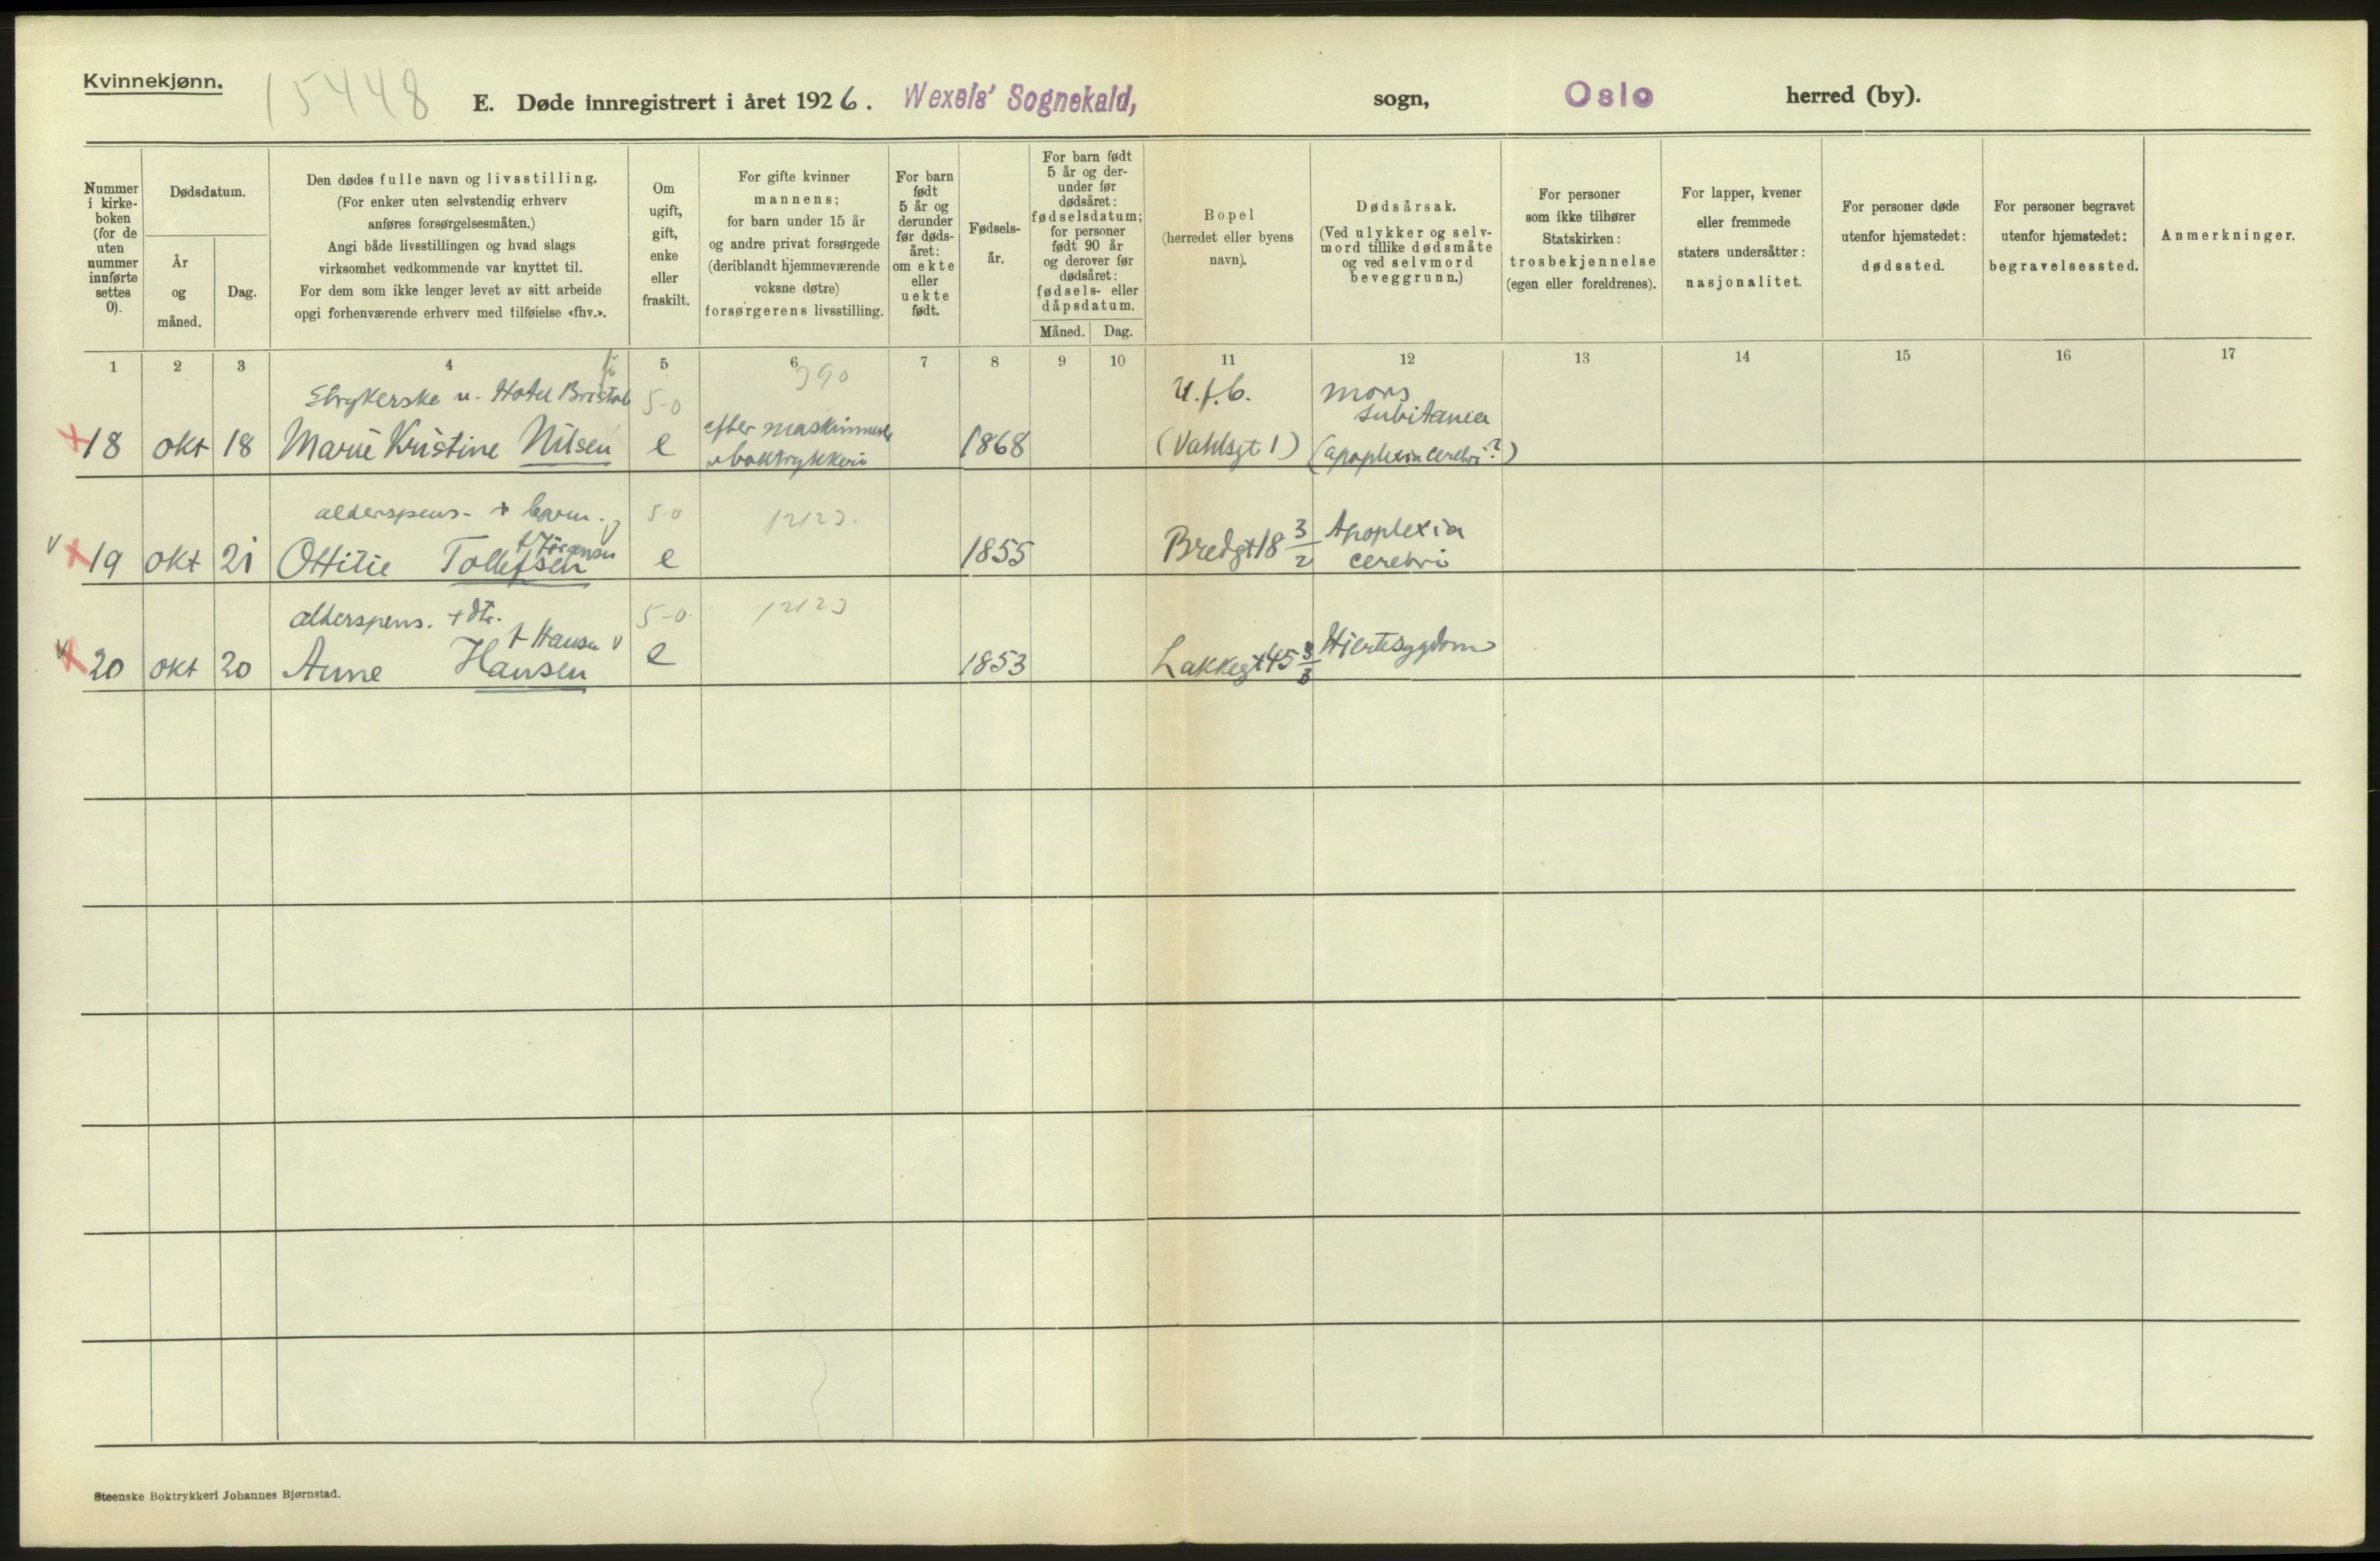 Kvinnekjønn.
15448
E. Døde innregistrert i året 1926. Wexels' Sognekald, sogn, Oslo herred (by).
Nummer i kirke- boken (for de uten nummer innførte settes 0).
Dødsdatum.
År og måned.
Dag.
Den dødes fulle navn og livsstilling.
(For enker uten selvstendig erhverv
anføres forsørgelsesmåten.)
Angi både livsstillingen og hvad slags
virksomhet vedkommende var knyttet til.
For dem som ikke lenger levet av sitt arbeide
opgi forhenværende erhverv med tilføielse «fhv.».
Om ugift, gift, enke eller fraskilt.
For gifte kvinner
mannens;
for barn under 15 år
og andre privat forsørgede
(deriblandt hjemmeværende
voksne døtre)
forsørgerens livsstilling.
For barn født 5 år og derunder før døds- året: om ekte eller uekte født.
Fødsels- år.
For barn født
5 år og der-
under før
dødsåret:
fødselsdatum;
for personer
født 90 år
og derover før
dødsåret:
fødsels- eller
dåpsdatum.
Måned. Dag.
Bopel
(herredet eller byens
navn).
Dødsårsak.
(Ved ulykker og selv-
mord tillike dødsmåte
og ved selvmord
beveggrunn.)
For personer
som ikke tilhører
Statskirken:
trosbekjennelse
(egen eller foreldrenes).
For lapper, kvener
eller fremmede
staters undersåtter:
nasjonalitet.
For personer døde
utenfor hjemstedet:
dødssted.
For personer begravet
utenfor hjemstedet:
begravelsessted.
Anmerkninger.
1 2 3 4 5 6 7 8 9 10 11 12 13 14 15 16 17
Strykerske v. Hotel Bristol 5-0 390 U.f.b. Mors subitanea
18 okt 18 Marie Kristine Nilsen e efter v boktrykkeri 1868 (Vahlsgt 1) (apoplexia cerebri?)
alderspens. + barn. 5-0 1212
f. Jörgensen
19 okt 21 Ottilie Tollefsen e 1855 Bredgt 18 3/2 Apoplexia cerebri
alderspens. + dtr. 5-0 1212
f Hansen v
20 okt 20 Anne Hansen e 1853 Lakkegt 45 3/3 Hjertesygdom
Steenske Boktrykkeri Johannes Bjørnstad.